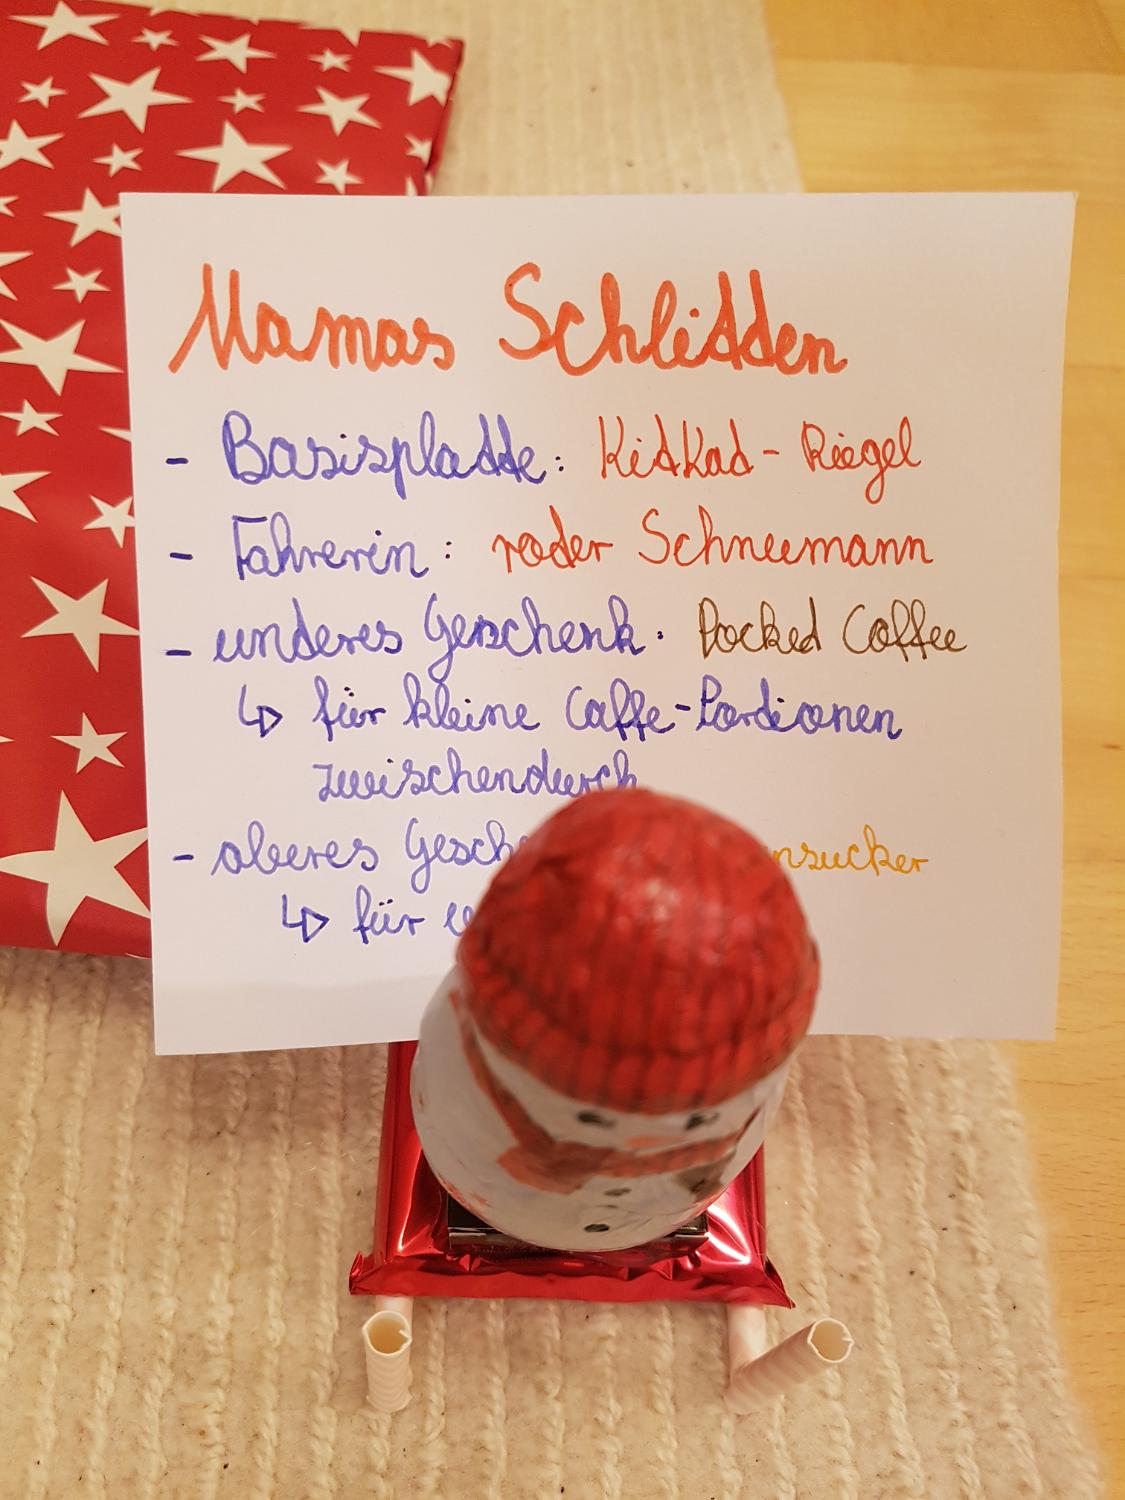 Mamas Schlitten
- Basisplatte: KitKat-Riegel
- Fahrerin: roter Schneemann
- unteres Geschenk: Pocket Coffee
↳ für kleine Caffe-Portionen
zwischendurch
- oberes Gesche nsucker
↳ für